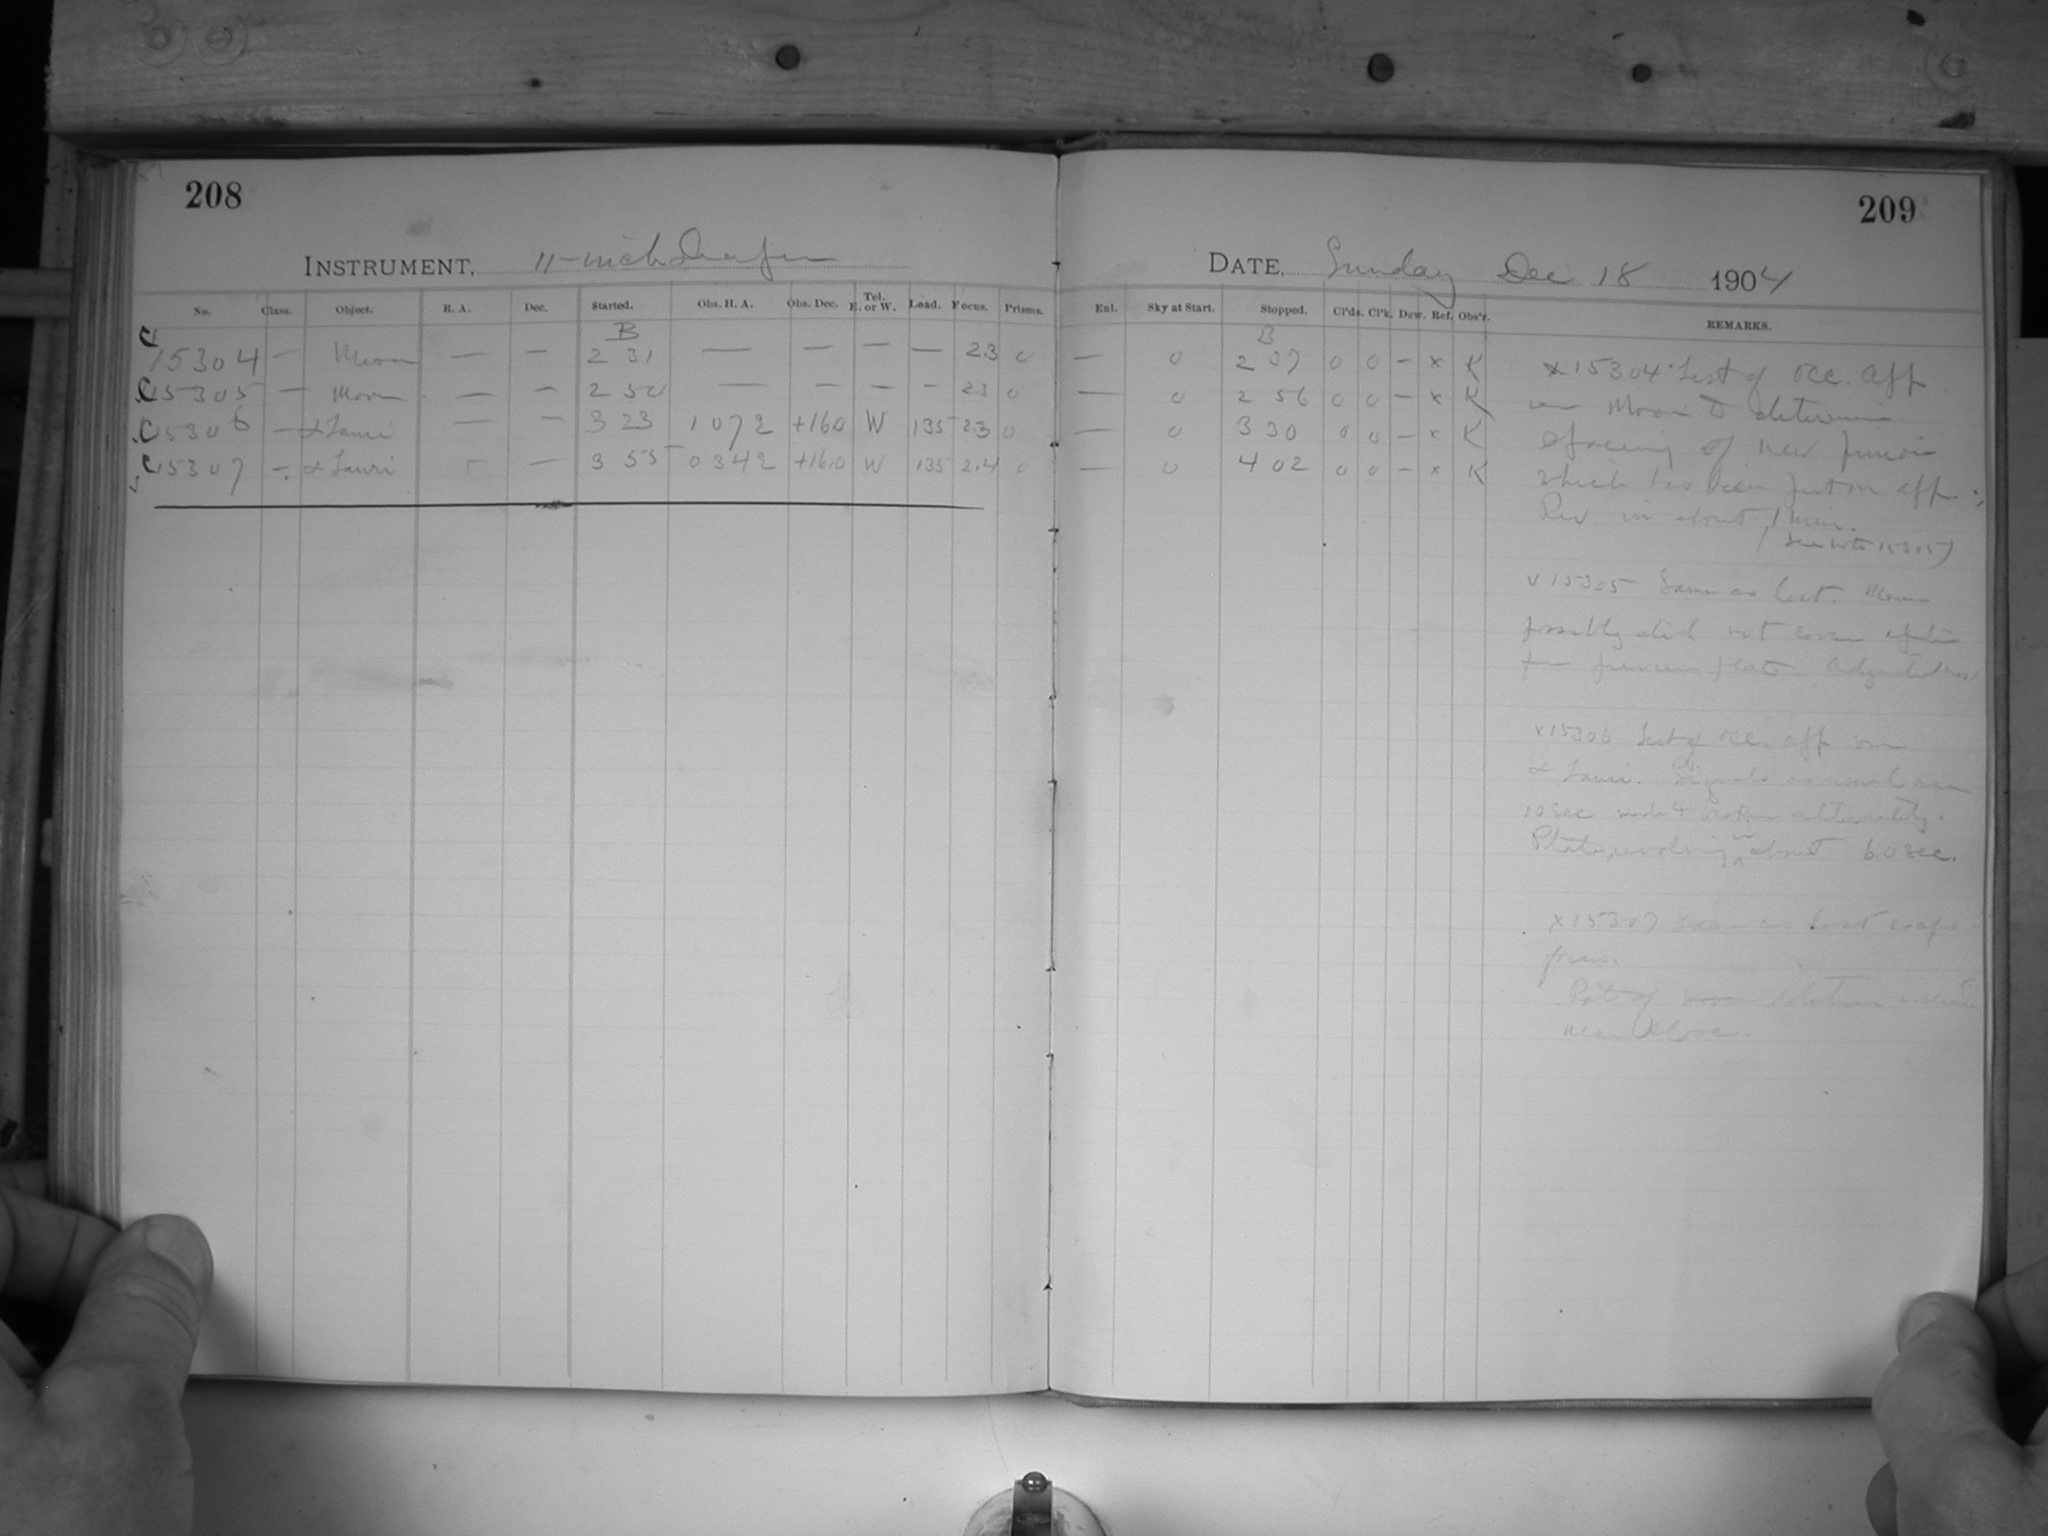 208
INSTRUMENT, 11-inch Draper
No. Class. Object. R. A. Dec. Started. Obs. H. A. Obs. Dec. Tel. E. or W. Load. Focus. Prisms.
B
C 15304 — Moon — — 2 31 — — — — 2.3 0
C 15305 — Moon — — 2 50 — — — — 2.3 0
C 15306 — α Tauri — — 3 23 1 07 2 +16.0 W 135 2.3 0
C 15307 — α Tauri — — 3 55 0 34 2 +16.0 W 135 2.4 0
209
DATE, Sunday Dec 18 1904
Enl. Sky at Start. Stopped. Cl'ds. Cl'k. Dew. Ref. Obs'r. REMARKS.
B
— 0 2 37 0 0 — x K
— 0 2 56 0 0 — x K
— 0 3 30 0 0 — x K
— 0 4 02 0 0 — x K
x 15304 Test of occ. app
on Moon to determine
spacing of new pinion
which has been put on app.
Rev in about 1 min.
(see note 15305)
v 15305 Same as last. Moon
possibly did not cover
for previous plate. Adjusted
x 15306 Test of occ. app on
α Tauri. Signals as usual
10 sec made & broken alternately.
Plate revolving about 60 sec.
x 15307 Same as last except
focus.
Rate of rotation
near above.